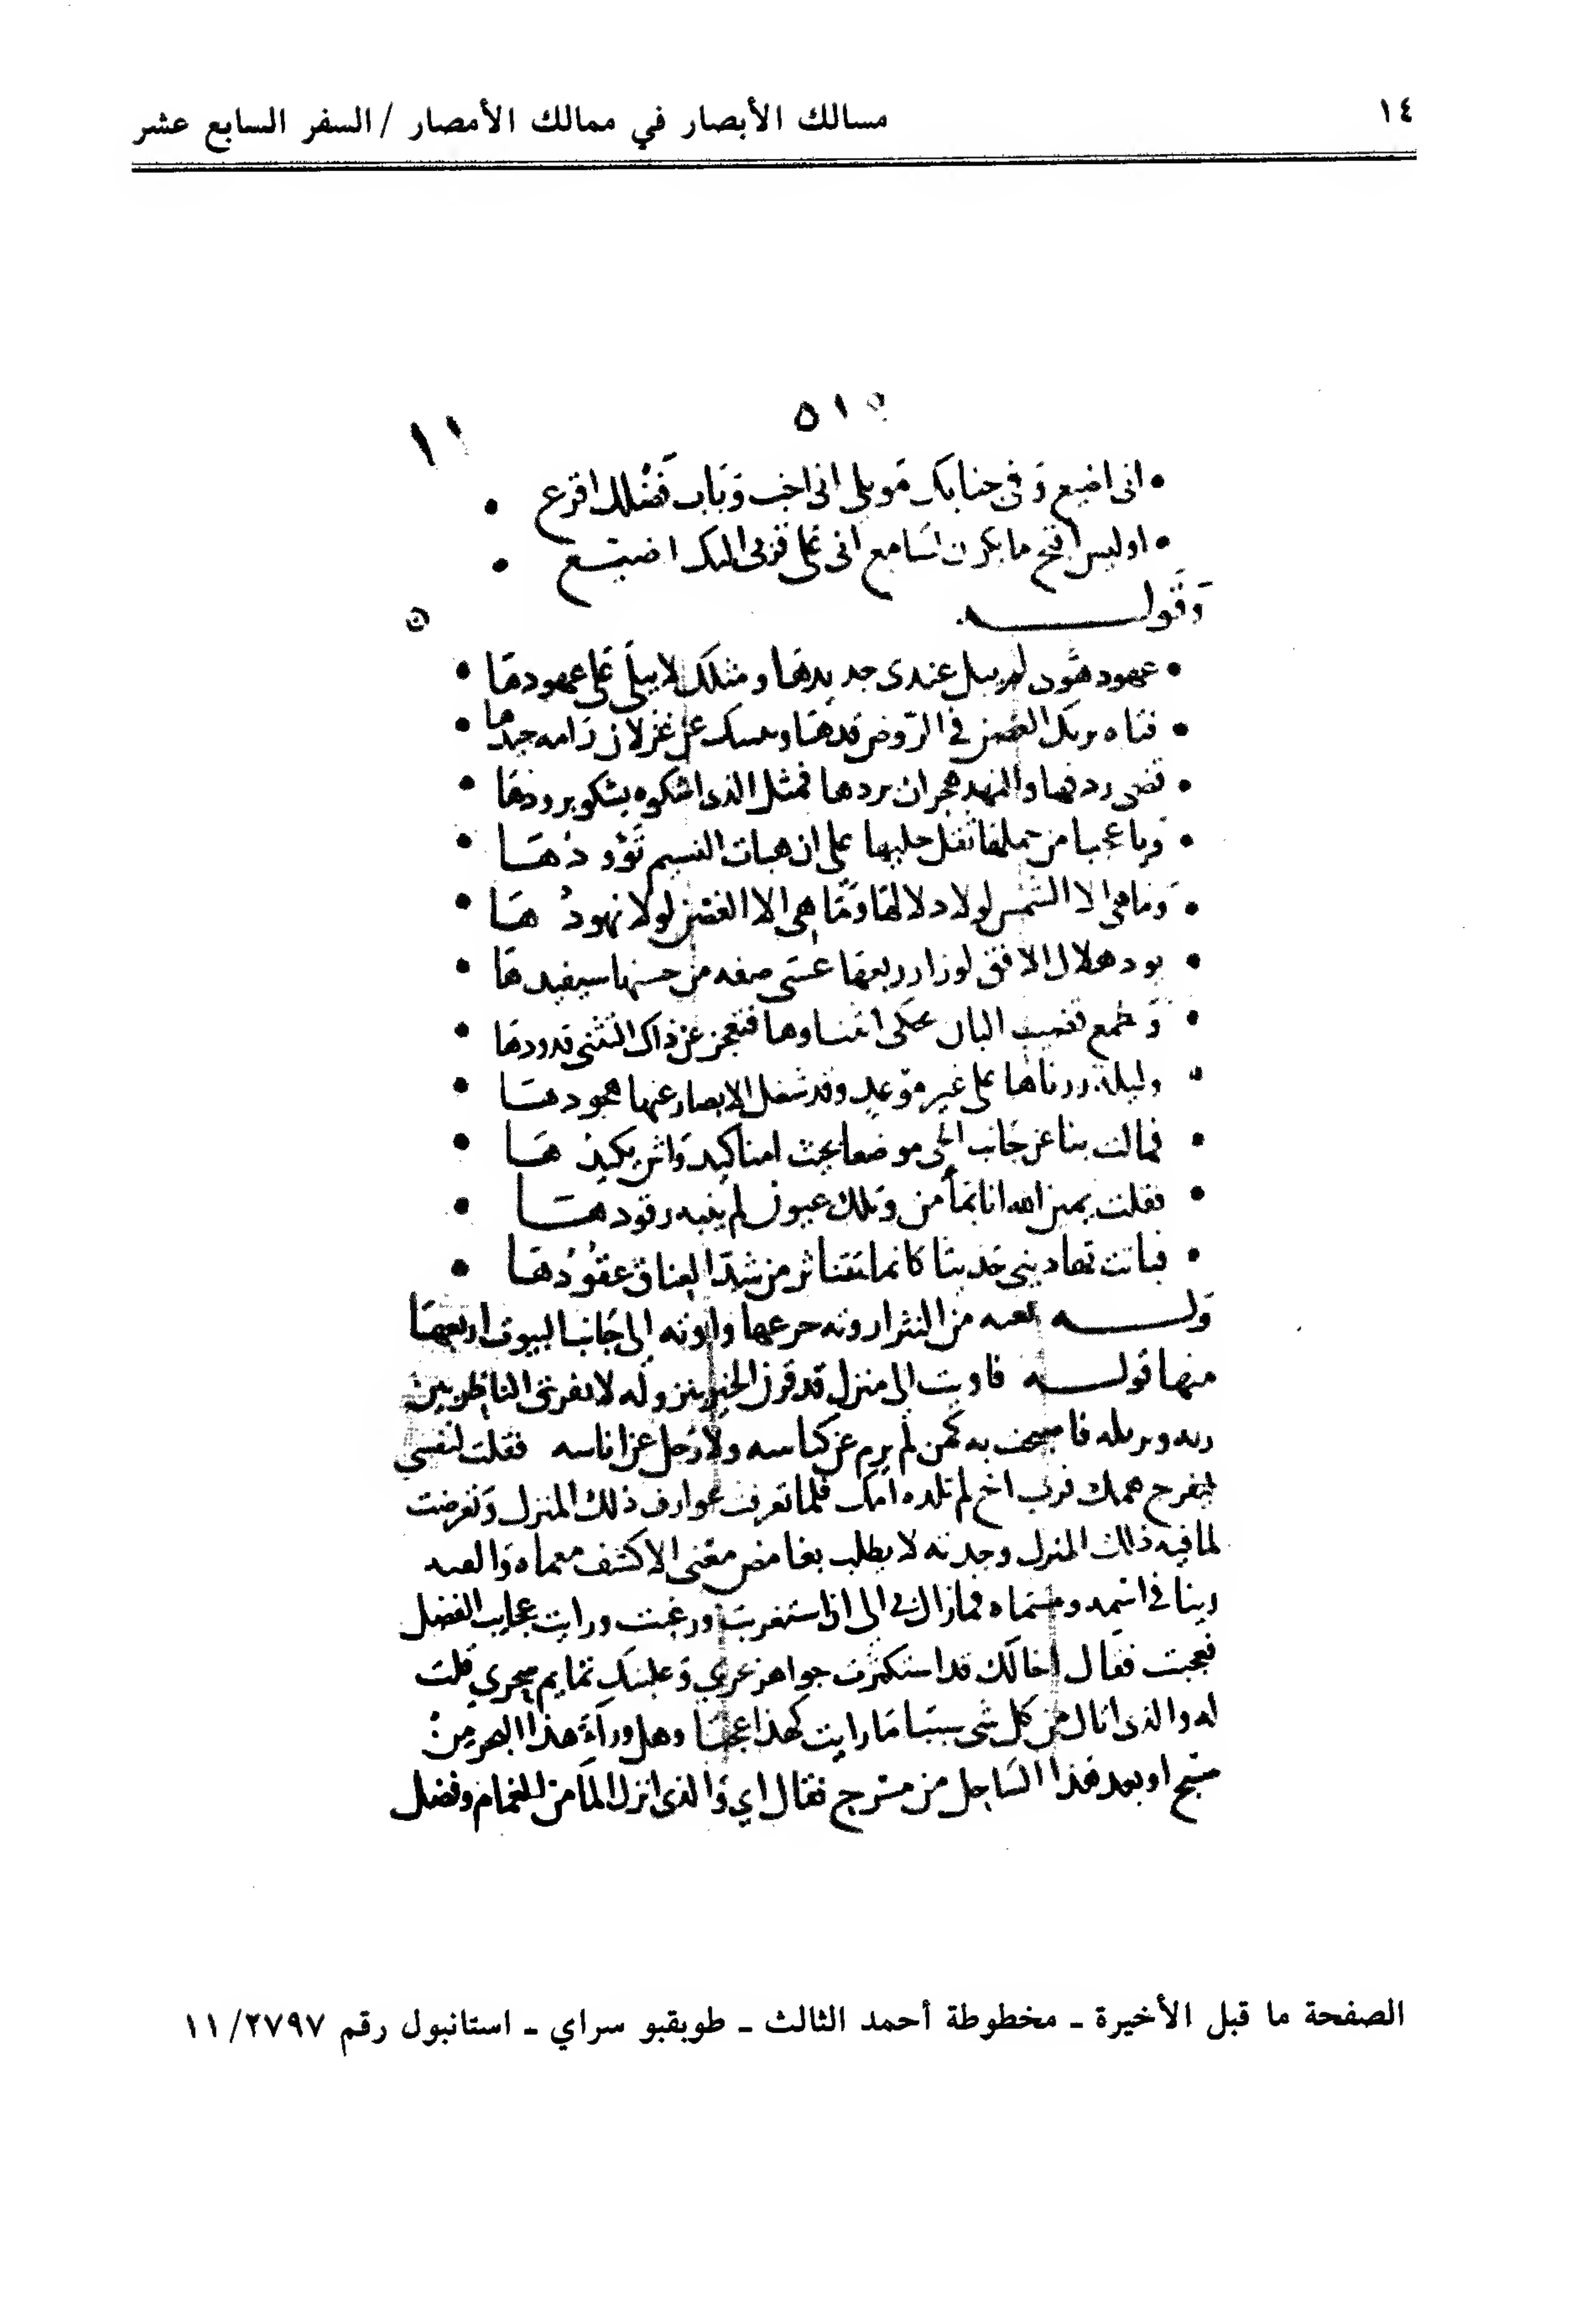 ١٤
مسالك الأبصار في ممالك الأمصار / السفر السابع عشر
٥١٥
١١
• انى اضيع وَفى جنابك مَوىلى انى اخب وَبَاب فَضْلك اقرع •
• اوليس اقبح ما يكرن لسَامع انى عَلى قربى اليك اضيع •
وَقَولـــه
• عهود هوى لم يبل عندى جديدهَا ومثلك لا يبلَى عَلى عهودهَا •
• فتاه تريك الغصن فى الرّوض قدهَا وتنسيك عن غزلان رَامه جيدها •
• تضى ردفها والنهد هجران بردها فمثل الذى اشكوه يشكو برودهَا •
• وَيا عجبا من حملها ثقل حليها على ان هبات النسيم تَؤودُهَا •
• وَمَا هى الا الشمس لولا دلالهَا وَمَا هى الا الغصن لولا نهودُهَا •
• يود هلال الافق لو زار ربعهَا عَسَى صفه من حسنها سيفيدهَا •
• وَتطمع قضب البان تحكى انثناوها فتعجز عن ذاك التثنى قدودهَا •
• وليلة زرناها على غير مَوعد وقد شغل الابصار عنها هجودهَا •
• فمالت بنا عن جَانب الحى موضعا بحيث امنا كيد وَاش يكيدُهَا •
• فقلت يمين الله انا بمَأمن وَتلك عيون لم ينبه رقودهَا •
• فباتت تهادينى حَديثا كانما تتناثر من شدّ العناق عقُودُهَا •
وَلـــه من النثر اروته حرعها واوته الى جَانب البيوت اربعهَا
منها قولـــه فاويت الى منزل قد قرن الخير بنزوله لا يفرق الناظر بين
ربه ونزيله فاصبحت به كمن لم يرم عن كناسه ولا رُحل عن اناسه فقلت لنفسى
ليفرح همك فرب اخ لم تلده امك فلما تعرفت عوارف ذلك المنزل وَتعرضت
لما فيه ذلك المنزل وجدته لا يطلب بغامض معَنى الا كشف معماه وَالفيه
ربنا فى اسمه ومسَماه فما زال بى الى ان استغربت ورغبت ورايت عجايب الفضل
فعجبت فقال اخالك قد استكثرت جواهر بحري وَعليك تمايم سحري قلت
له والذى انال من كل شى سببَا مَا رايت كهذا عجبَا وهل ورآءَ هذا البهر مِن
منبج او بعد هذا السَاحل من مسَرح فقال اي وَالذى انزل المآ من الغمام وفضل
الصفحة ما قبل الأخيرة ـ مخطوطة أحمد الثالث ـ طوبقبو سراي ـ استانبول رقم ٢٧٩٧/ ١١